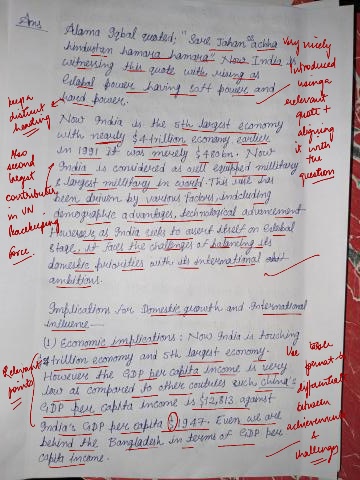 Ans
Alama Iqbal quoted; "Sare Jahan se achha
hindustan hamara hamara" Now India is
witnessing this quote with rising as
Global power having soft power and
hard power.
Now India is the 5th largest economy
with nearly $4 trillion economy, earlier
in 1991 it was merely $480bn. Now
India is considered as well equipped millitary
& largest millitary in world. This rise has
been driven by various factors, including
demographic advantages, technological advancement
However as India seeks to assert itself on Global
stage, it faces the challenges of balancing its
domestic priorities with its international
ambitions.
Implications for Domestic growth and International
influence —
(1) Economic implications: Now India is touching
4 trillion economy and 5th largest economy.
However the GDP per capita income is very
low as compared to other coutries such China's
GDP per capita income is $12,813 against
India's GDP per capita $1947. Even we are
behind the Bangladesh in terms of GDP per
capita income.
keep a
distinct
heading
Also
second
largest
contributor
in UN
Peacekeeping
force.
Relevant
points
very nicely
Introduced
using a
relevant
quote +
aligning
it with
the
question
Use
format to
between
achievement
&
challenges